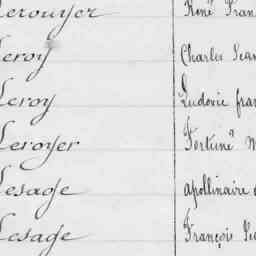 Lerouyer René Fran
Leroy Charles Jean
Leroy Ludovic fran
Leroyer Fortuné M
Lesage apollinaire
Lesage François